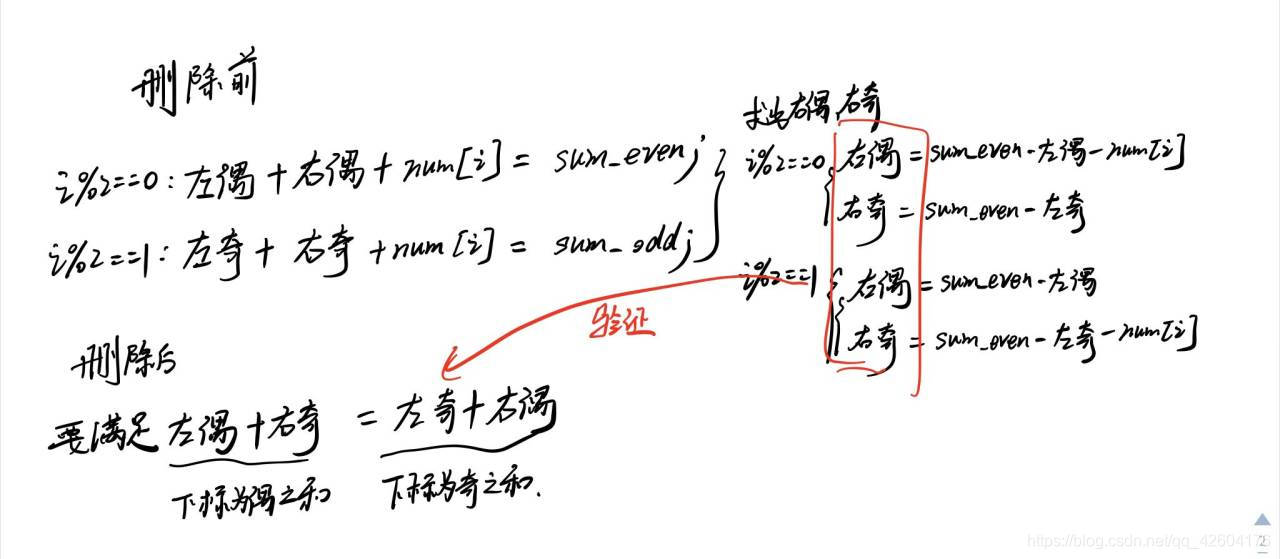 删除前
i%2==0: 左偶+右偶+num[i] = sum_even;
i%2==1: 左奇+右奇+num[i] = sum_odd;
求出右偶,右奇
i%2==0 右偶=sum_even-左偶-num[i]
右奇=sum_even-左奇
i%2==1 右偶=sum_even-左偶
右奇=sum_even-左奇-num[i]
验证
删除后
要满足 左偶+右奇 = 左奇+右偶
下标为偶之和 下标为奇之和.
https://blog.csdn.net/qq_42604176
2